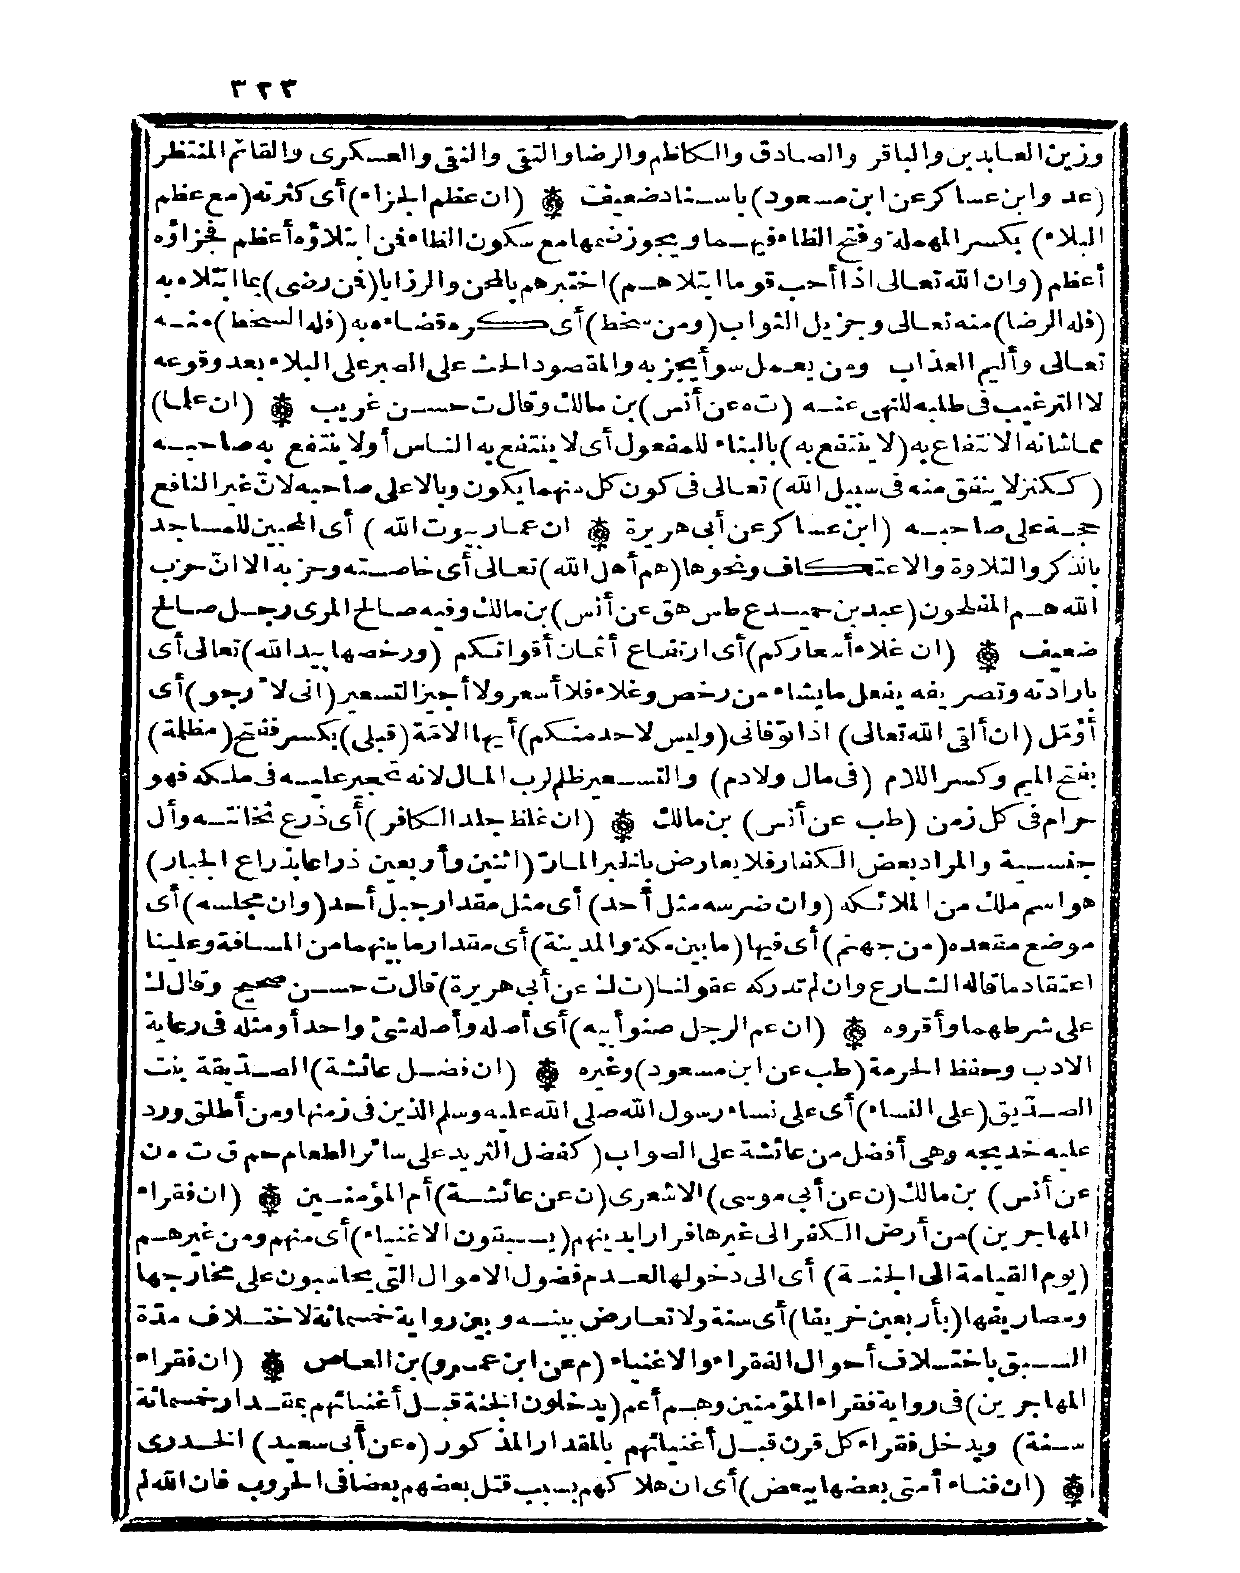 ٣٢٣
وزين العابدين والباقر والصادق والكاظم والرضا والتقى والنقى والعسكرى والقائم المنتظر
(عد وابن عساكر عن ابن مسعود) باسناد ضعيف (ان عظم الجزاء) أى كثرته (مع عظم
البلاء) بكسر المهملة وفتح الظاء فيهما ويجوز ضمها مع سكون الظاء فمن ابتلاؤه أعظم فجزاؤه
أعظم (وان الله تعالى اذا أحب قوما ابتلاهم) اختبرهم بالمحن والرزايا (فمن رضى) بما ابتلاه به
(فله الرضا) منه تعالى وجزيل الثواب (ومن سخط) أى كره قضاءه به (فله السخط) منه
تعالى وأليم العذاب ومن يعمل سوأ يجز به والمقصود الحث على الصبر على البلاء بعد وقوعه
لا الترغيب فى طلبه للنهى عنه (ت ه عن أنس) بن مالك وقال ت حسن غريب (ان علما)
مما شانه الانتفاع به (لا ينتفع به) بالبناء للمفعول أى لا ينتفع به الناس أو لا ينتفع به صاحبه
(ككنز لا ينفق منه فى سبيل الله) تعالى فى كون كل منهما يكون وبالا على صاحبه لانّ غير النافع
حجة على صاحبه (ابن عساكر عن أبى هريرة ان عمار بيوت الله) أى المحبين للمساجد
بالذكر والتلاوة والاعتكاف ونحوها (هم أهل الله) تعالى أى خاصته وحزبه الا انّ حزب
الله هم المفلحون (عبد بن حميد ع طس هق عن أنس) بن مالك وفيه صالح المرى رجل صالح
ضعيف (ان غلاء أسعاركم) أى ارتفاع أثمان أقواتكم (ورخصها بيد الله) تعالى أى
بارادته وتصريفه يفعل ما يشاء من رخص وغلاء فلا أسعر ولا أجيز التسعير (انى لا رجو) أى
أؤمّل (ان ألقى الله تعالى) اذا توفانى (وليس لاحد منكم) أيها الامّة (قبلى) بكسر ففتح (مظلة)
بفتح الميم وكسر اللام (فى مال ولا دم) والتسعير ظلم لرب المال لانه تحجير عليه فى ملكه فهو
حرام فى كل زمن (طب عن أنس) بن مالك (ان غلظ جلد الكافر) أى ذرع ثخانته وأل
جنسية والمراد بعض الكفار فلا يعارض بالخبر المارّ (اثنين وأربعين ذراعا بذراع الجبار)
هو اسم ملك من الملائكه (وان ضرسه مثل أحد) أى مثل مقدار جبل أحد (وان مجلسه) أى
موضع مقعده (من جهنم) أى فيها (ما بين مكة والمدينة) أى مقدار ما بينهما من المسافة وعلينا
اعتقاد ما قاله الشارع وان لم تدركه عقولنا (ت ك عن أبى هريرة) قال ت حسن صحيح وقال ك
على شرطهما وأقروه (ان عم الرجل صنو أبيه) أى أصله وأصله شئ واحد أو مثله فى رعاية
الادب وحفظ الحرمة (طب عن ابن مسعود) وغيره (ان فضل عائشة) الصديقة بنت
الصدّيق (على النساء) أى على نساء رسول الله صلى الله عليه وسلم الذين فى زمنها ومن أطلق ورد
عليه خديجه وهى أفضل من عائشة على الصواب (كفضل الثريد على سائر الطعام حم ق ت ه ن
عن أنس) بن مالك (ن عن أبى موسى) الاشعرى (ن عن عائشة) أم المؤمنين (ان فقراء
المهاجرين) من أرض الكفر الى غيرها فرارا بدينهم (يسبقون الاغنياء) أى منهم ومن غيرهم
(يوم القيامة الى الجنة) أى الى دخولها لعدم فضول الاموال التى يحاسبون على مخارجها
ومصاريفها (بأربعين خريفا) أى سنة ولا تعارض بينه وبين رواية خمسمائة لاختلاف مدّة
السبق باختلاف أحوال الفقراء والاغنياء (م عن ابن عمرو) بن العاص (ان فقراء
المهاجرين) فى رواية فقراء المؤمنين وهم أعم (يدخلون الجنة قبل أغنيائهم بمقدار خمسمائة
سنة) ويدخل فقراء كل قرن قبل أغنيائهم بالمقدار المذكور (ه عن أبى سعيد) الخدرى
(ان فناء أمتى بعضها ببعض) أى ان هلاكهم بسبب قتل بعضهم بعضا فى الحروب فان الله لم